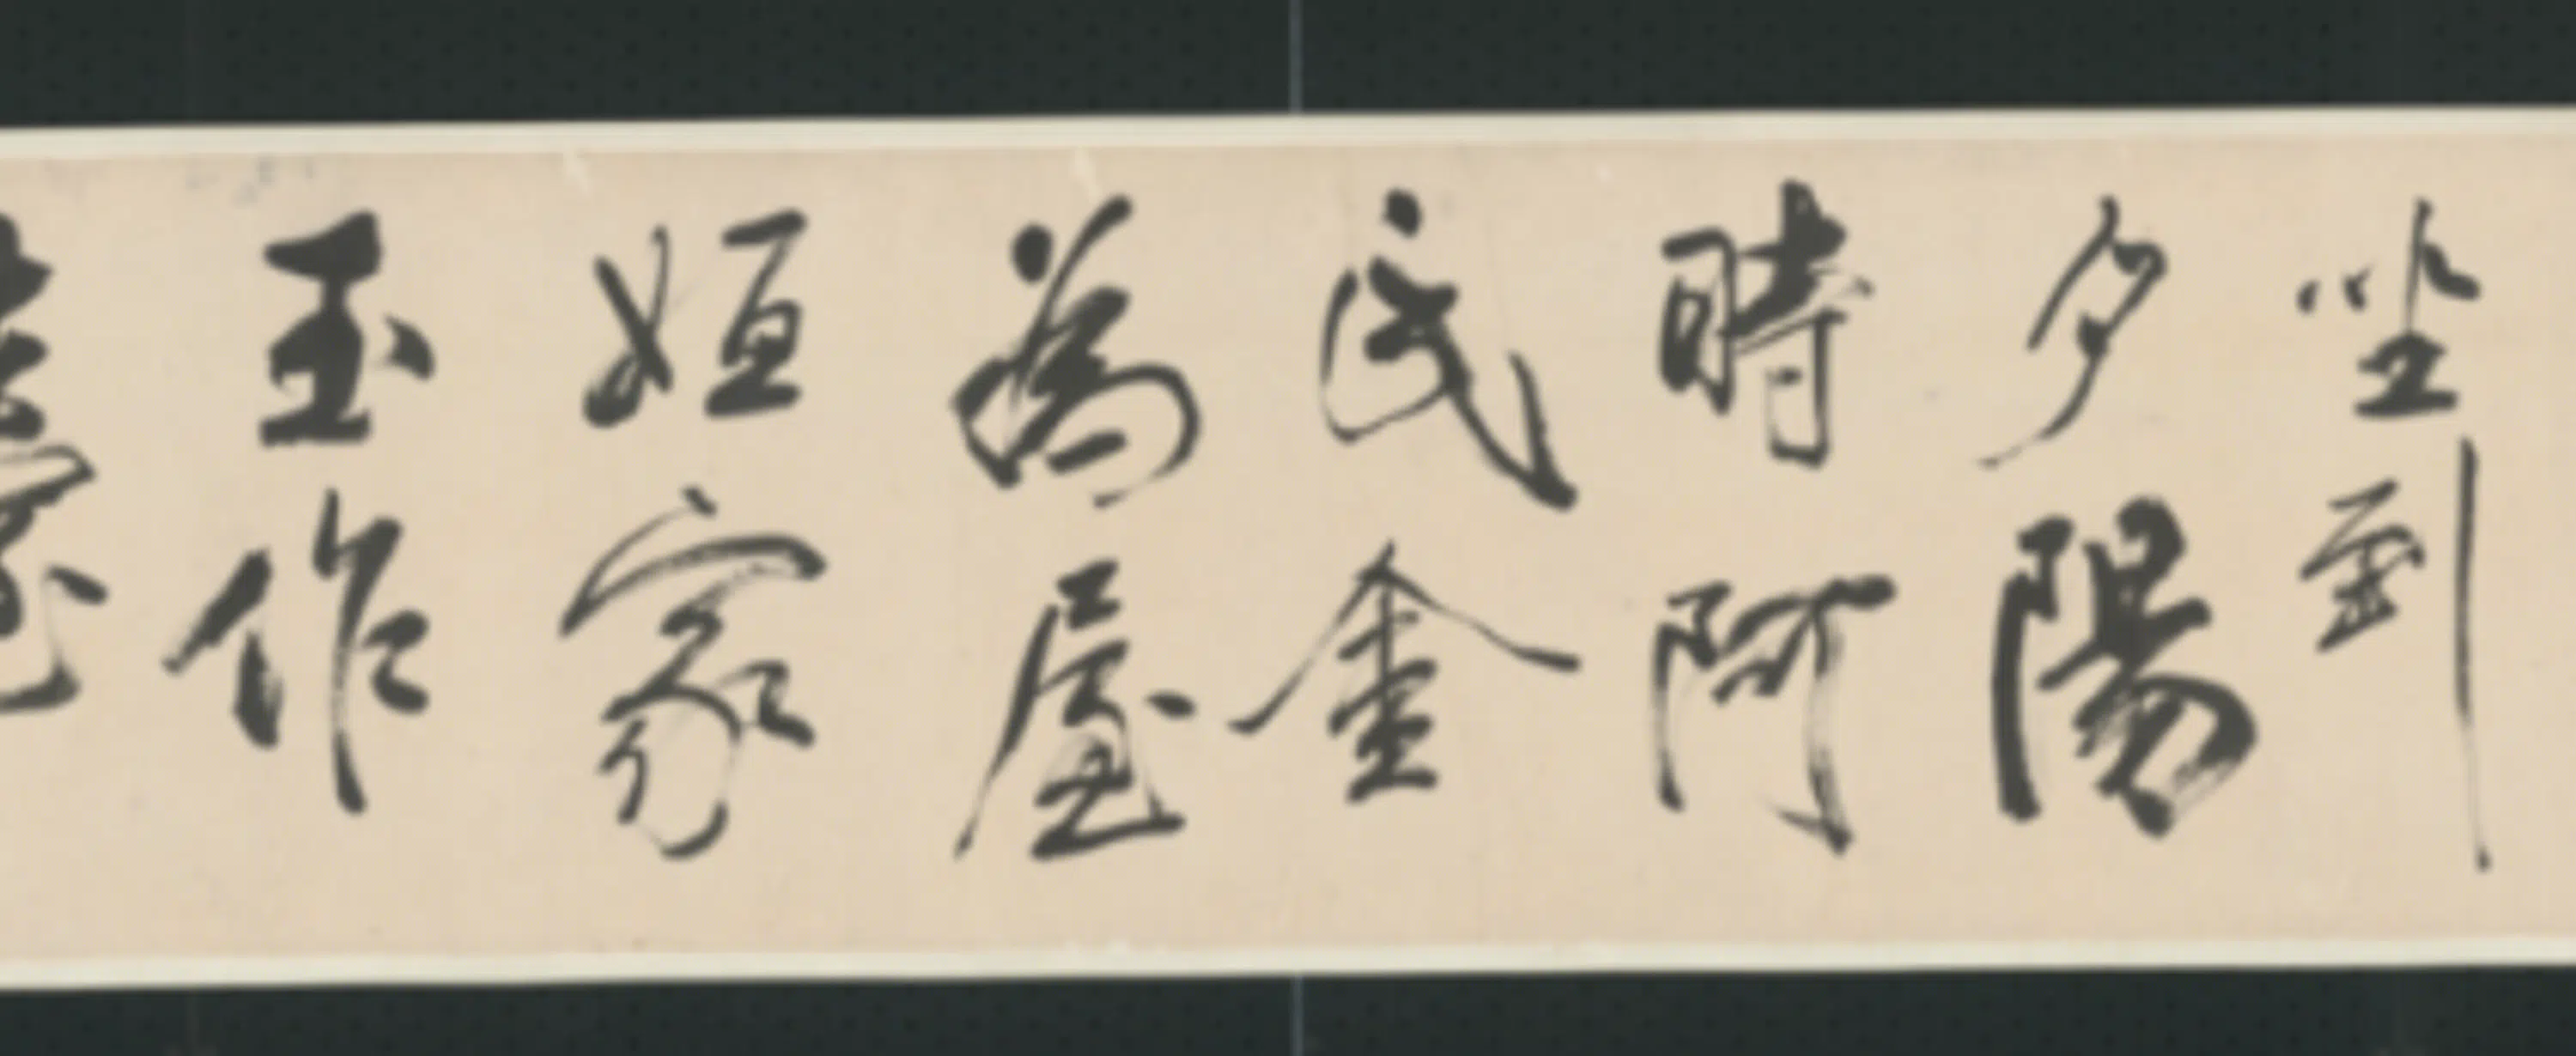 坐到
夕陽
時阿
氏金
為屋
姮家
玉作